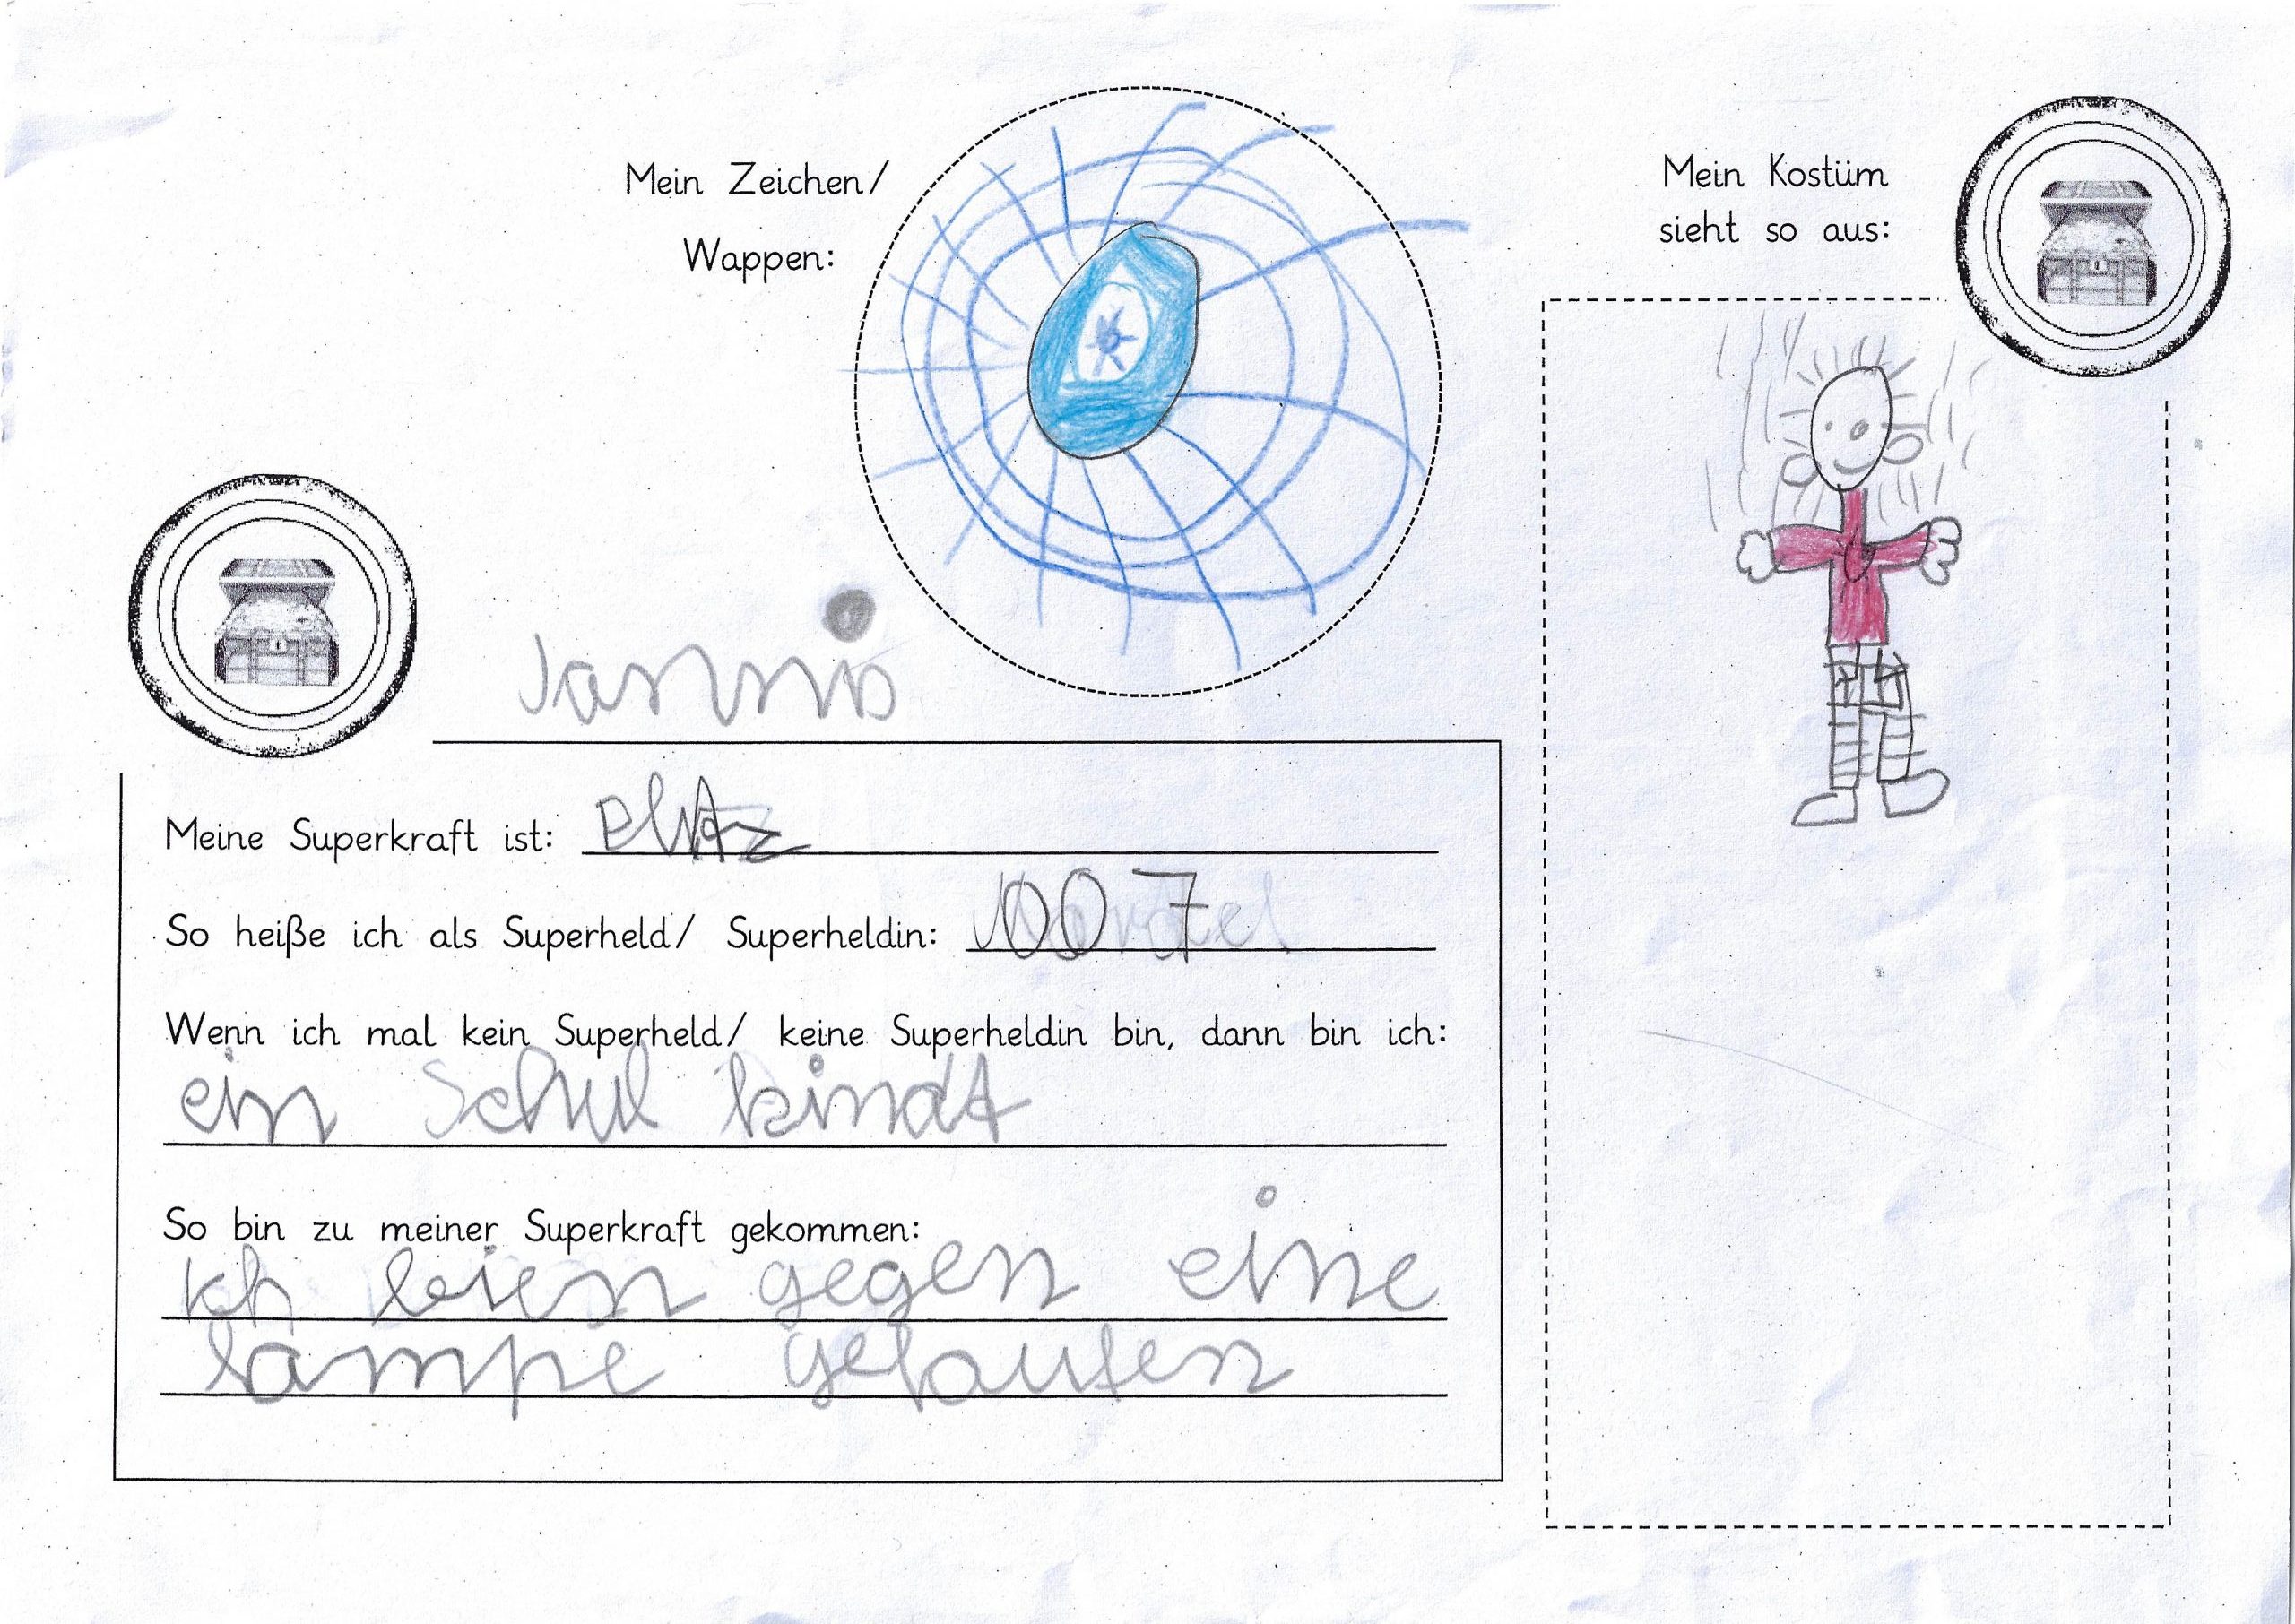 Mein Zeichen/
Wappen:
Mein Kostüm
sieht so aus:
Jannis
Meine Superkraft ist:
So heiße ich als Superheld/ Superheldin: 007
Wenn ich mal kein Superheld/ keine Superheldin bin, dann bin ich:
ein Schul kindt
So bin zu meiner Superkraft gekommen:
Ich bien gegen eine
lampe gelaufen